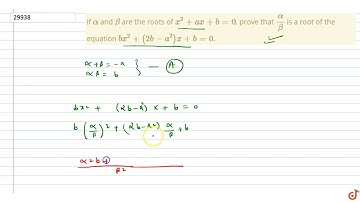 29938
If α and β are the roots of x² + ax + b = 0, prove that α/β is a root of the
equation bx² + (2b − a²)x + b = 0.
α + β = −a
αβ = b
} — A
bx² + (2b − a²) x + b = 0
b (α/β)² + (2b − a²) α/β + b
α² b +
β²